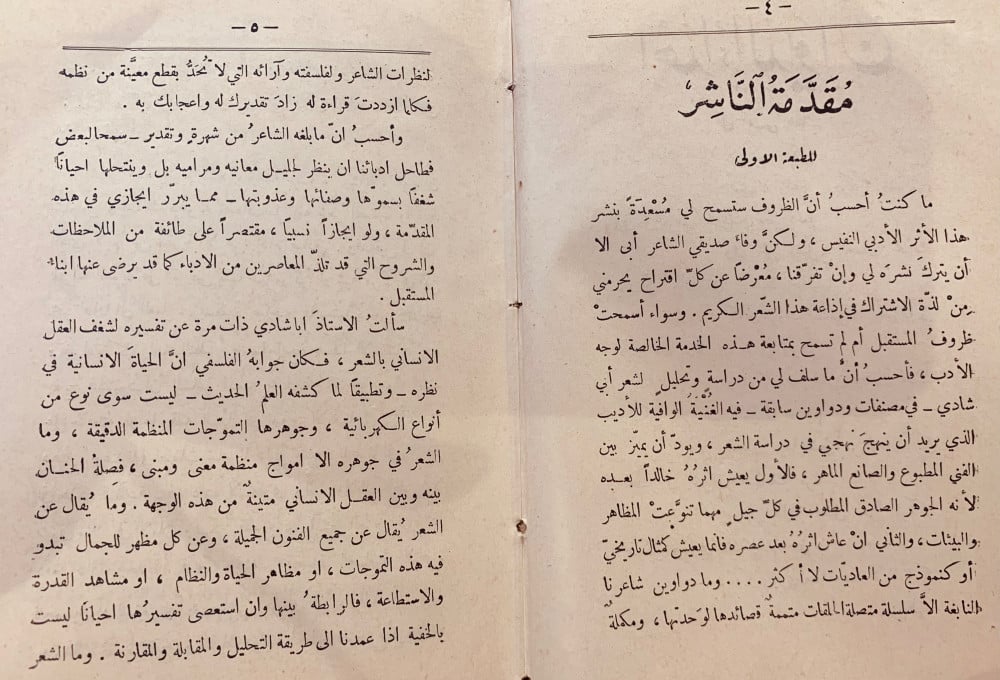 — ٤ —
مُقَدَّمَةُ النَّاشِرْ
للطبعة الاولى
ما كنتُ أحسبُ أنَّ الظروف ستسمح لي مُسْعِدَةً بنشر
هذا الأثر الأدبي النفيس ، ولكنَّ وفاءَ صديقي الشاعر أبى الا
أن يتركَ نشرَه لي وإنْ تفرّقنا ، مُعْرضاً عن كلّ اقتراح يحرمني
مِنْ لذّة الاشتراك في إذاعة هذا الشّعر الكريم . وسواء أسمحتْ
ظروفُ المستقبل أم لم تسمح بمتابعة هذه الخدمة الخالصة لوجه
الأدب ، فأحسبُ أنَّ ما سلف لي من دراسةٍ وتحليلٍ لشعر أبي
شادي ــ في مصنفات ودواوين سابقة ــ فيه الغُنْيَةَ الوافية للأديب
الذي يريد أن ينهجَ نهجي في دراسة الشعر ، ويودّ أن يميّز بين
الفني المطبوع والصانع الماهر ، فالأول يعيش اثرُهُ خالداً بعده
لأنه الجوهر الصادق المطلوب في كلّ جيلٍ مهما تنوَّعتْ المظاهر
والبيئات ، والثاني انْ عاش اثرُهُ بعد عصره فانما يعيش كتمثال تاريخيّ
أو كنموذج من العاديّات لا أكثر .... وما دواوين شاعرنا
النابغة الاَّ سلسلة متصلة الحلقات متممةٌ قصائدها لوَحدتها ، ومكملةٌ
— ٥ —
لنظرات الشاعر ولفلسفته وآرائه التي لا تُحَدُّ بقطع معيَّنة من نظمه
فكلما ازددتَ قراءة له زادَ تقديرك له واعجابك به .
وأحسبُ انّ مابلغه الشاعرُ من شهرةٍ وتقدير ــ سمحا لبعض
فطاحل ادبائنا ان ينظر لجليل معانيه ومراميه بل وينتحلها احياناً
شغفاً بسموّها وصفائها وعذوبتها ــ مما يبرّر ايجازي في هذه
المقدّمة ، ولو ايجازاً نسبيًا ، مقتصراً على طائفة من الملاحظات
والشروح التي قد تلذّ المعاصرين من الادباء كما قد يرضى عنها ابناءُ
المستقبل .
سألتُ الاستاذَ اباشادي ذات مرة عن تفسيره لشغف العقل
الانساني بالشعر ، فكان جوابهُ الفلسفي انَّ الحياةَ الانسانية في
نظره ــ وتطبيقًا لما كشفه العلمُ الحديث ــ ليست سوى نوع من
أنواع الكهربائية ، وجوهرها التموّجات المنظمة الدقيقة ، وما
الشعرُ في جوهره الا امواج منظمة معنى ومبنى ، فصِلةُ الحنان
بينه وبين العقل الانساني متينةٌ من هذه الوجهة . وما يُقال عن
الشعر يُقال عن جميع الفنون الجميلة ، وعن كل مظهر للجمال تبدو
فيه هذه التموجات ، او مظاهر الحياة والنظام ، او مشاهد القدرة
والاستطاعة ، فالرابطةُ بينها وان استعصى تفسيرُها احيانًا ليست
بالخفية اذا عمدنا الى طريقة التحليل والمقابلة والمقارنة . وما الشعر